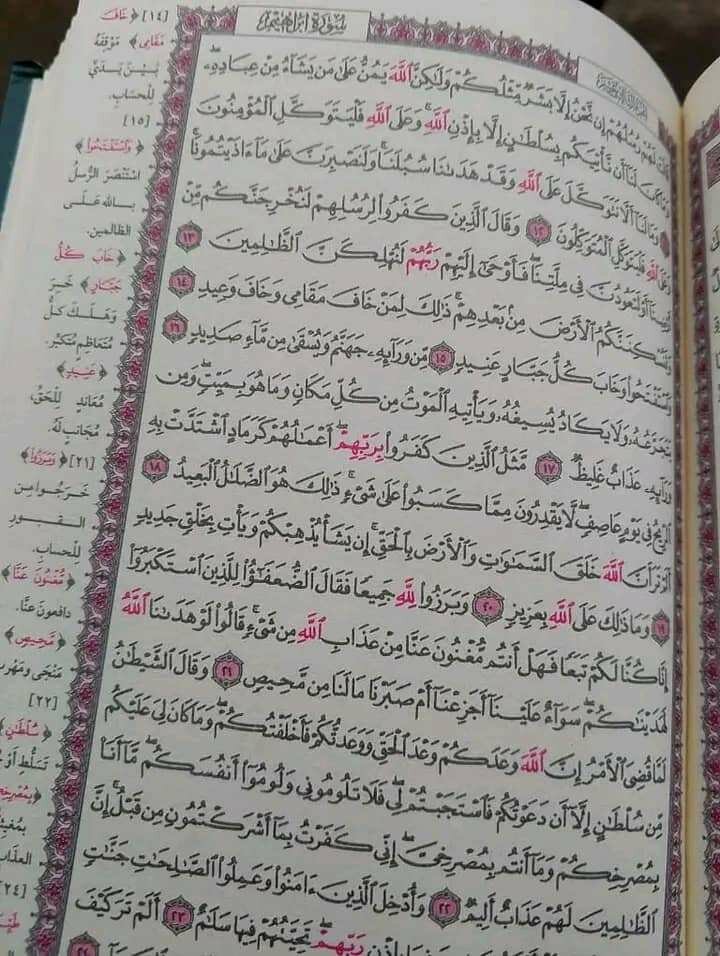 سُورَةُ إِبْرَاهِيم
قَالَتْ لَهُمْ رُسُلُهُمْ إِن نَّحْنُ إِلَّا بَشَرٌ مِّثْلُكُمْ وَلَٰكِنَّ ٱللَّهَ يَمُنُّ عَلَىٰ مَن يَشَآءُ مِنْ عِبَادِهِۦۖ
وَمَا كَانَ لَنَآ أَن نَّأْتِيَكُم بِسُلْطَٰنٍ إِلَّا بِإِذْنِ ٱللَّهِۚ وَعَلَى ٱللَّهِ فَلْيَتَوَكَّلِ ٱلْمُؤْمِنُونَ
وَمَا لَنَآ أَلَّا نَتَوَكَّلَ عَلَى ٱللَّهِ وَقَدْ هَدَىٰنَا سُبُلَنَاۚ وَلَنَصْبِرَنَّ عَلَىٰ مَآ ءَاذَيْتُمُونَاۚ
وَعَلَى ٱللَّهِ فَلْيَتَوَكَّلِ ٱلْمُتَوَكِّلُونَ ١٢ وَقَالَ ٱلَّذِينَ كَفَرُوا۟ لِرُسُلِهِمْ لَنُخْرِجَنَّكُم مِّنْ
أَرْضِنَآ أَوْ لَتَعُودُنَّ فِى مِلَّتِنَاۖ فَأَوْحَىٰٓ إِلَيْهِمْ رَبُّهُمْ لَنُهْلِكَنَّ ٱلظَّٰلِمِينَ ١٣
وَلَنُسْكِنَنَّكُمُ ٱلْأَرْضَ مِنۢ بَعْدِهِمْۚ ذَٰلِكَ لِمَنْ خَافَ مَقَامِى وَخَافَ وَعِيدِ ١٤
وَٱسْتَفْتَحُوا۟ وَخَابَ كُلُّ جَبَّارٍ عَنِيدٍ ١٥ مِّن وَرَآئِهِۦ جَهَنَّمُ وَيُسْقَىٰ مِن مَّآءٍ صَدِيدٍ ١٦
يَتَجَرَّعُهُۥ وَلَا يَكَادُ يُسِيغُهُۥ وَيَأْتِيهِ ٱلْمَوْتُ مِن كُلِّ مَكَانٍ وَمَا هُوَ بِمَيِّتٍۖ وَمِن
وَرَآئِهِۦ عَذَابٌ غَلِيظٌ ١٧ مَّثَلُ ٱلَّذِينَ كَفَرُوا۟ بِرَبِّهِمْۖ أَعْمَٰلُهُمْ كَرَمَادٍ ٱشْتَدَّتْ بِهِ
ٱلرِّيحُ فِى يَوْمٍ عَاصِفٍۖ لَّا يَقْدِرُونَ مِمَّا كَسَبُوا۟ عَلَىٰ شَىْءٍۚ ذَٰلِكَ هُوَ ٱلضَّلَٰلُ ٱلْبَعِيدُ ١٨
أَلَمْ تَرَ أَنَّ ٱللَّهَ خَلَقَ ٱلسَّمَٰوَٰتِ وَٱلْأَرْضَ بِٱلْحَقِّۚ إِن يَشَأْ يُذْهِبْكُمْ وَيَأْتِ بِخَلْقٍ جَدِيدٍ
١٩ وَمَا ذَٰلِكَ عَلَى ٱللَّهِ بِعَزِيزٍ ٢٠ وَبَرَزُوا۟ لِلَّهِ جَمِيعًا فَقَالَ ٱلضُّعَفَٰٓؤُا۟ لِلَّذِينَ ٱسْتَكْبَرُوٓا۟
إِنَّا كُنَّا لَكُمْ تَبَعًا فَهَلْ أَنتُم مُّغْنُونَ عَنَّا مِنْ عَذَابِ ٱللَّهِ مِن شَىْءٍۚ قَالُوا۟ لَوْ هَدَىٰنَا ٱللَّهُ
لَهَدَيْنَٰكُمْۖ سَوَآءٌ عَلَيْنَآ أَجَزِعْنَآ أَمْ صَبَرْنَا مَا لَنَا مِن مَّحِيصٍ ٢١ وَقَالَ ٱلشَّيْطَٰنُ
لَمَّا قُضِىَ ٱلْأَمْرُ إِنَّ ٱللَّهَ وَعَدَكُمْ وَعْدَ ٱلْحَقِّ وَوَعَدتُّكُمْ فَأَخْلَفْتُكُمْۖ وَمَا كَانَ لِىَ عَلَيْكُم
مِّن سُلْطَٰنٍ إِلَّآ أَن دَعَوْتُكُمْ فَٱسْتَجَبْتُمْ لِىۖ فَلَا تَلُومُونِى وَلُومُوٓا۟ أَنفُسَكُمۖ مَّآ أَنَا۠
بِمُصْرِخِكُمْ وَمَآ أَنتُم بِمُصْرِخِىَّۖ إِنِّى كَفَرْتُ بِمَآ أَشْرَكْتُمُونِ مِن قَبْلُۗ إِنَّ
ٱلظَّٰلِمِينَ لَهُمْ عَذَابٌ أَلِيمٌ ٢٢ وَأُدْخِلَ ٱلَّذِينَ ءَامَنُوا۟ وَعَمِلُوا۟ ٱلصَّٰلِحَٰتِ جَنَّٰتٍ
رَبِّهِمْۖ تَحِيَّتُهُمْ فِيهَا سَلَٰمٌ ٢٣ أَلَمْ تَرَ كَيْفَ
[١٤] ﴿خَافَ
مَقَامِي﴾ مَوْقِفَهُ
بَيْنَ يَدَيَّ
لِلْحِسَابِ.
[١٥]
﴿وَاسْتَفْتَحُوا﴾
اسْتَنْصَرَ الرُّسُلُ
بِاللهِ عَلَى
الظَّالِمِينَ.
﴿خَابَ كُلُّ
جَبَّارٍ﴾ خَسِرَ
وَهَلَكَ كُلُّ
مُتَعَاظِمٍ مُتَكَبِّرٍ.
﴿عَنِيدٍ﴾
مُعَانِدٍ لِلْحَقِّ،
مُجَانِبٍ لَهُ.
[٢١] ﴿وَبَرَزُوا﴾
خَرَجُوا مِنَ
القُبُورِ
لِلْحِسَابِ.
﴿مُغْنُونَ عَنَّا﴾
دَافِعُونَ عَنَّا.
﴿مَّحِيصٍ﴾
مَنْجًى وَمَهْرَبٍ
[٢٢]
﴿سُلْطَانٍ﴾
تَسَلُّطٍ أَوْ
العَذَابِ
[٢٤]